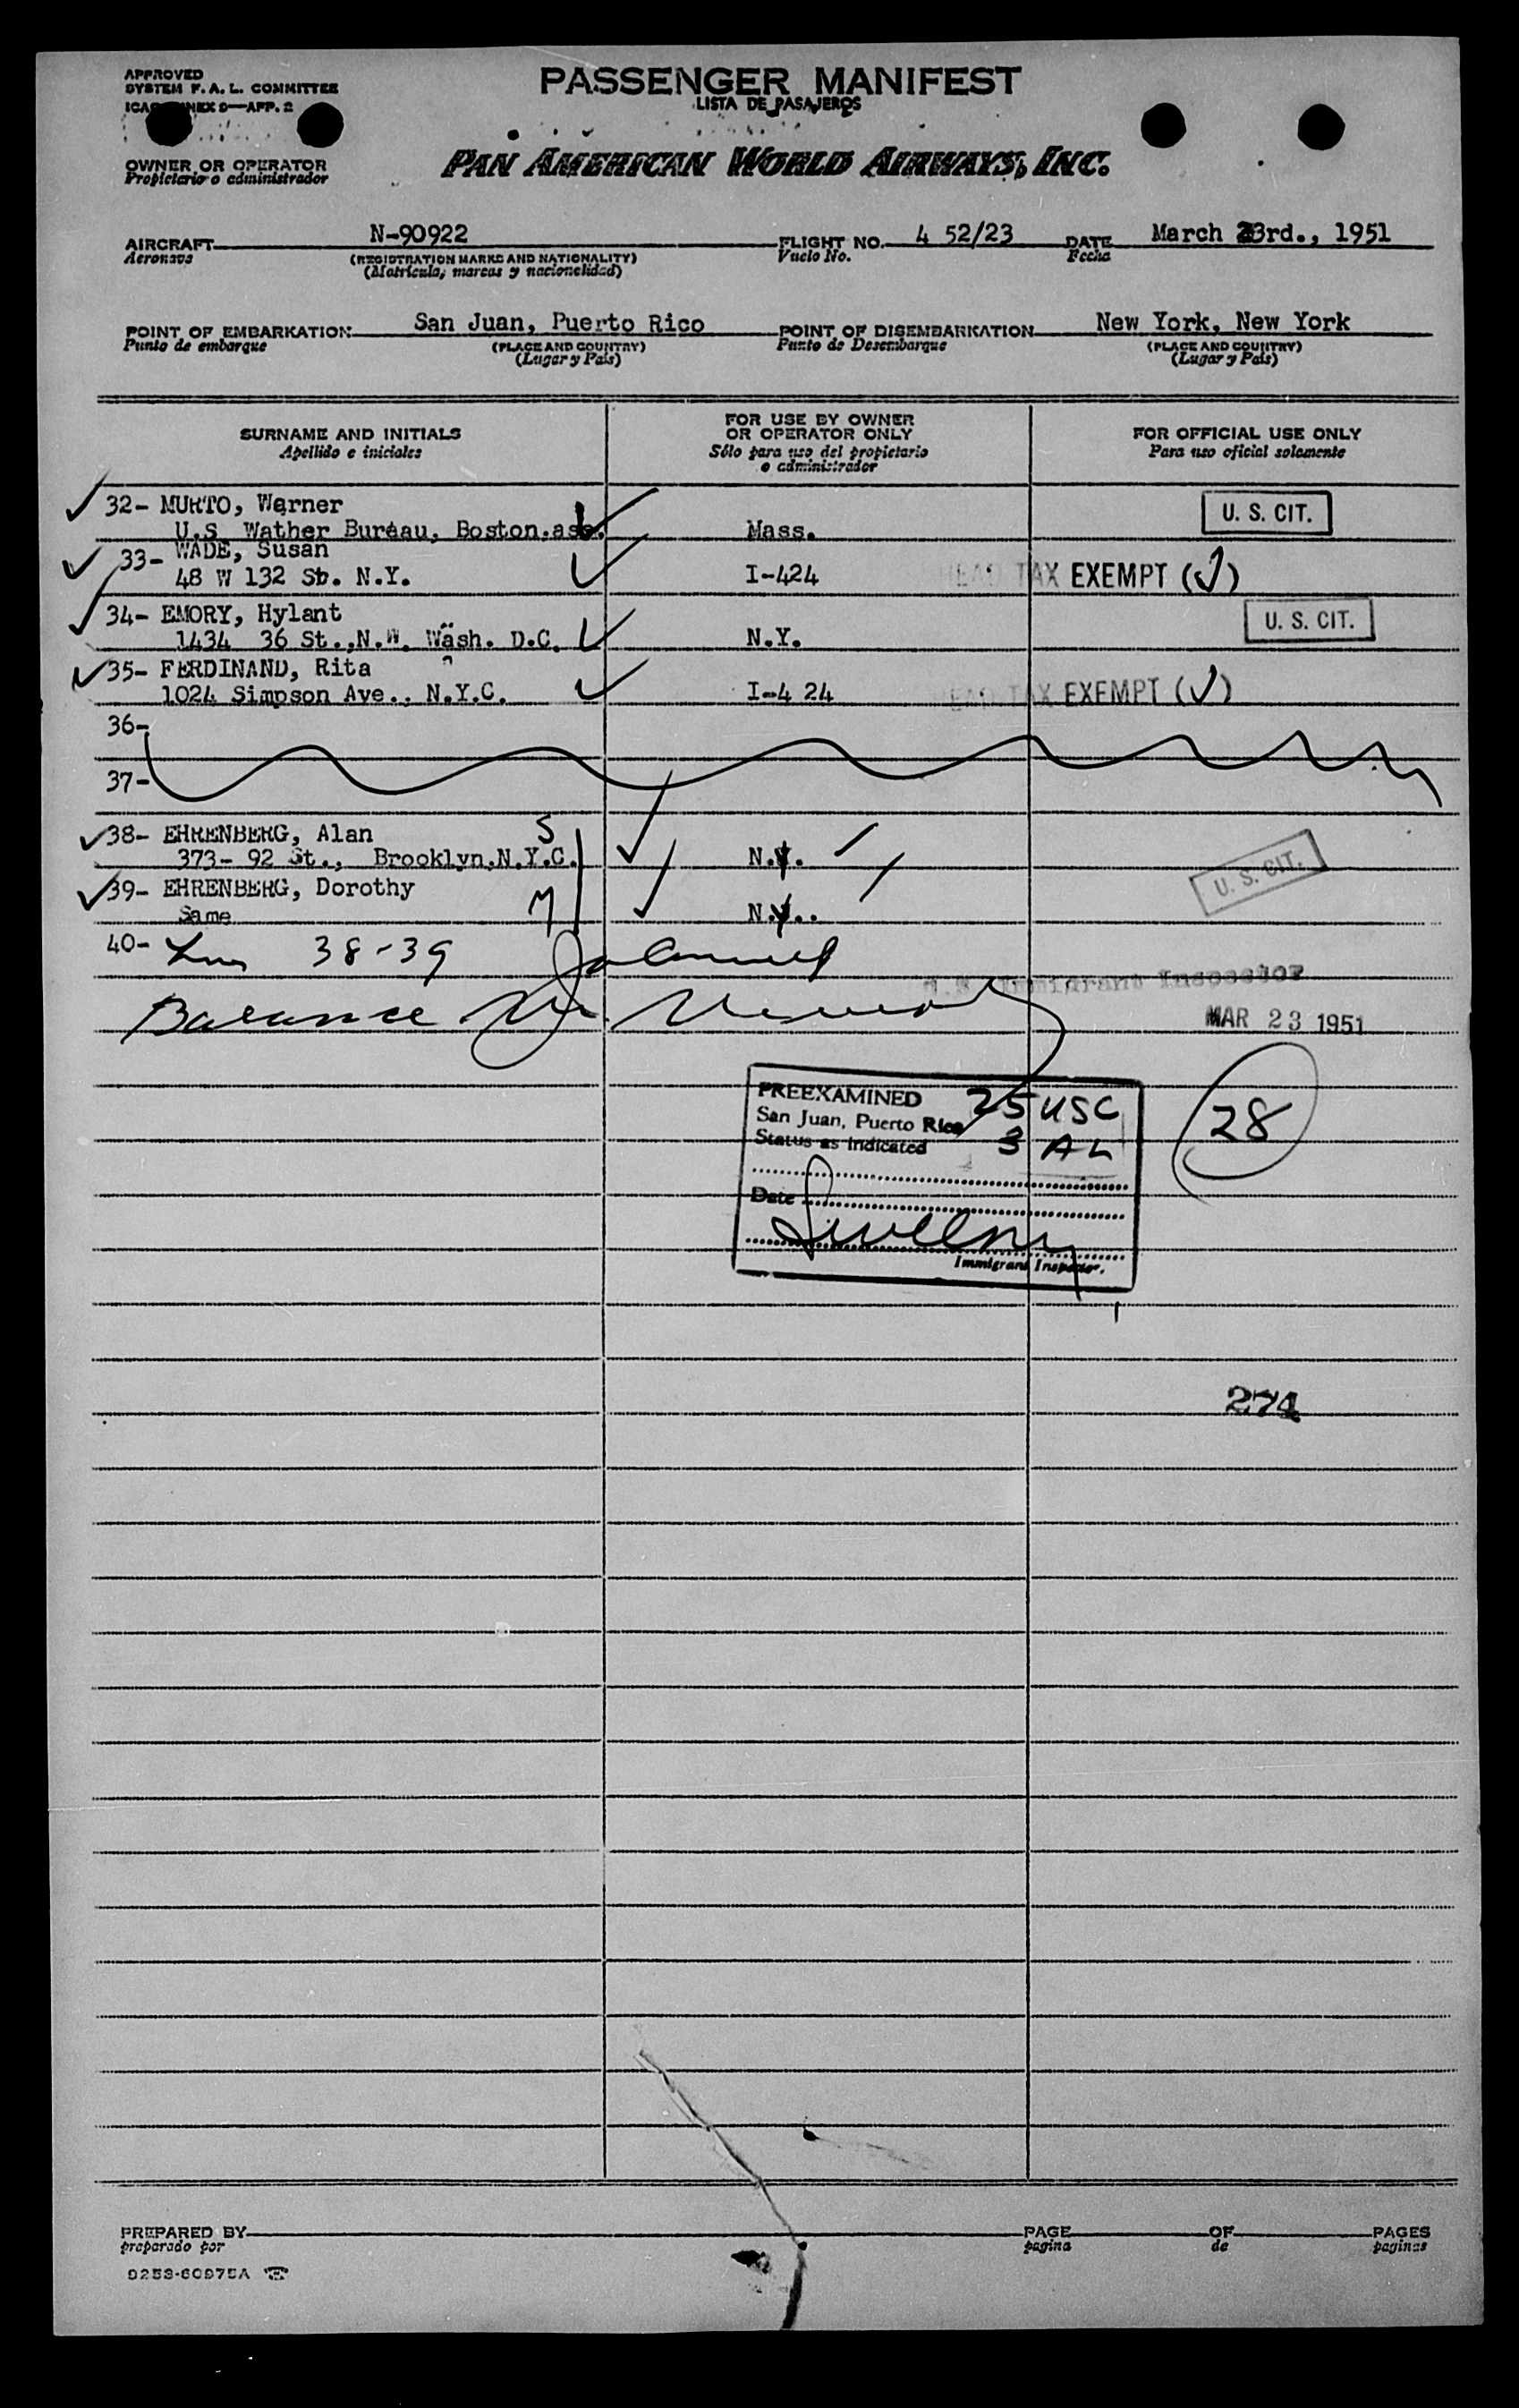 APPROVED
SYSTEM F. A. L. COMMITTEE
ICAO ANNEX 9—APP. 2
PASSENGER MANIFEST
LISTA DE PASAJEROS
OWNER OR OPERATOR
Propietario o administrador
PAN AMERICAN WORLD AIRWAYS, INC.
AIRCRAFT N-90922 FLIGHT NO. 4 52/23 DATE March 23rd., 1951
Aeronave (REGISTRATION MARKS AND NATIONALITY) Vuelo No. Fecha
(Matricula, marcas y nacionalidad)
POINT OF EMBARKATION San Juan, Puerto Rico POINT OF DISEMBARKATION New York, New York
Punto de embarque (PLACE AND COUNTRY) Punto de Desembarque (PLACE AND COUNTRY)
(Lugar y País) (Lugar y País)
SURNAME AND INITIALS
Apellido e iniciales
FOR USE BY OWNER
OR OPERATOR ONLY
Sólo para uso del propietario
o administrador
FOR OFFICIAL USE ONLY
Para uso oficial solamente
32- MURTO, Warner U. S. CIT.
U.S. Wather Bureau, Boston. Mass.
33- WADE, Susan
48 W 132 St. N.Y. I-424 HEAD TAX EXEMPT (✓)
34- EMORY, Hylant U. S. CIT.
1434 36 St.,N.W. Wash. D.C. N.Y.
35- FERDINAND, Rita
1024 Simpson Ave., N.Y.C. I-4 24 HEAD TAX EXEMPT (✓)
36-
37-
38- EHRENBERG, Alan S
373- 92 St., Brooklyn.N.Y.C. N.Y. U. S. CIT.
39- EHRENBERG, Dorothy M
Same N.Y..
40- 38-39
U.S. Immigrant Inspector
Balance
MAR 23 1951
PREEXAMINED 25 USC
San Juan, Puerto Rico 3 AL
Status as indicated
28
Date
Immigrant Inspector.
274
PREPARED BY PAGE OF PAGES
preparado por pagina de paginas
9253-60975A